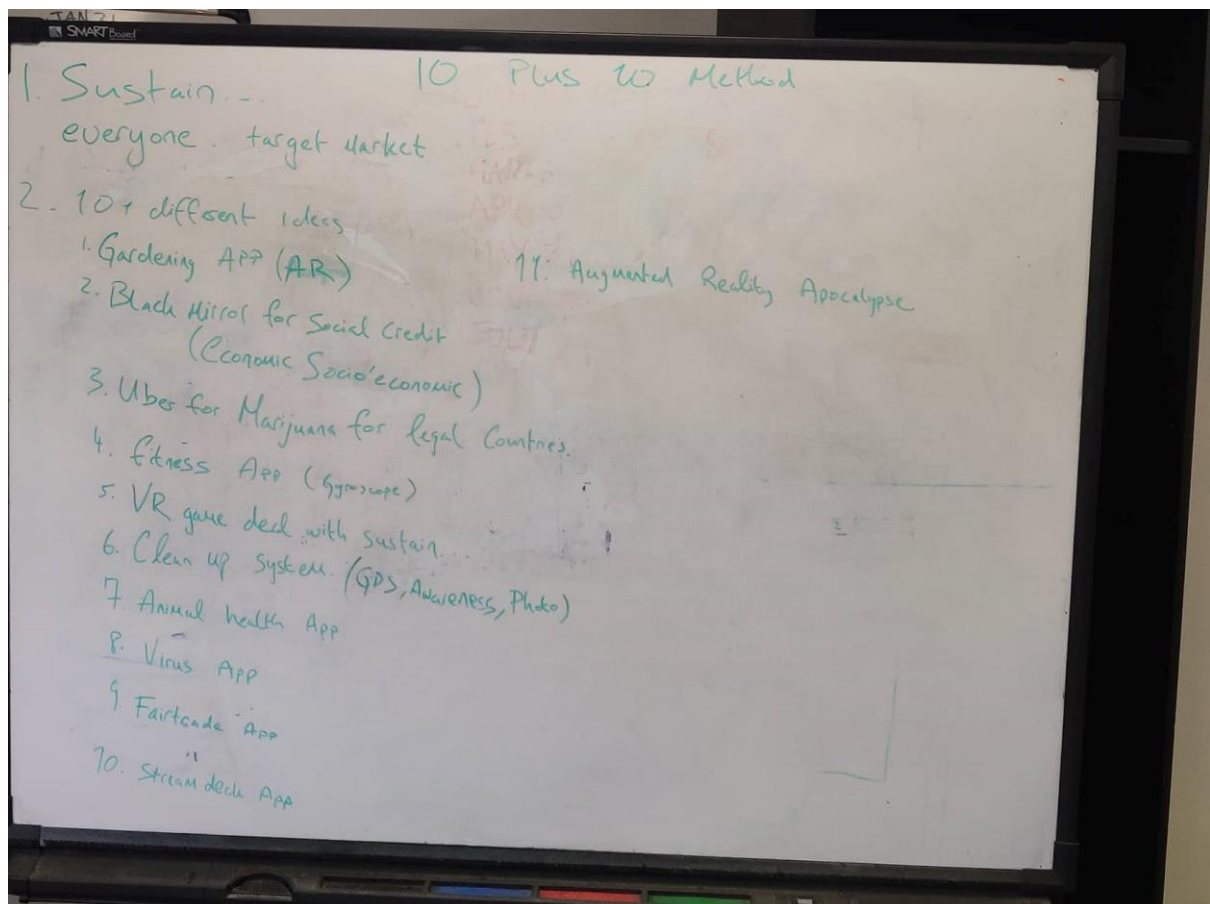 JAN 21
SMART Board
10 Plus 10 Method
1. Sustain...
everyone. target Market
2. 10+ different ideas
1. Gardening APP (AR)
2. Black Mirror for Social Credit
(Economic Socio'economic)
3. Uber for Marijuana for legal Countries.
4. fitness App (Gyroscope)
5. VR game deal with sustain...
6. Clean up system. (GPS, Awareness, Photo)
7 Animal health App
8. Virus App
9. Fairtrade App
10. Stream deck App
11. Augmented Reality Apocalypse